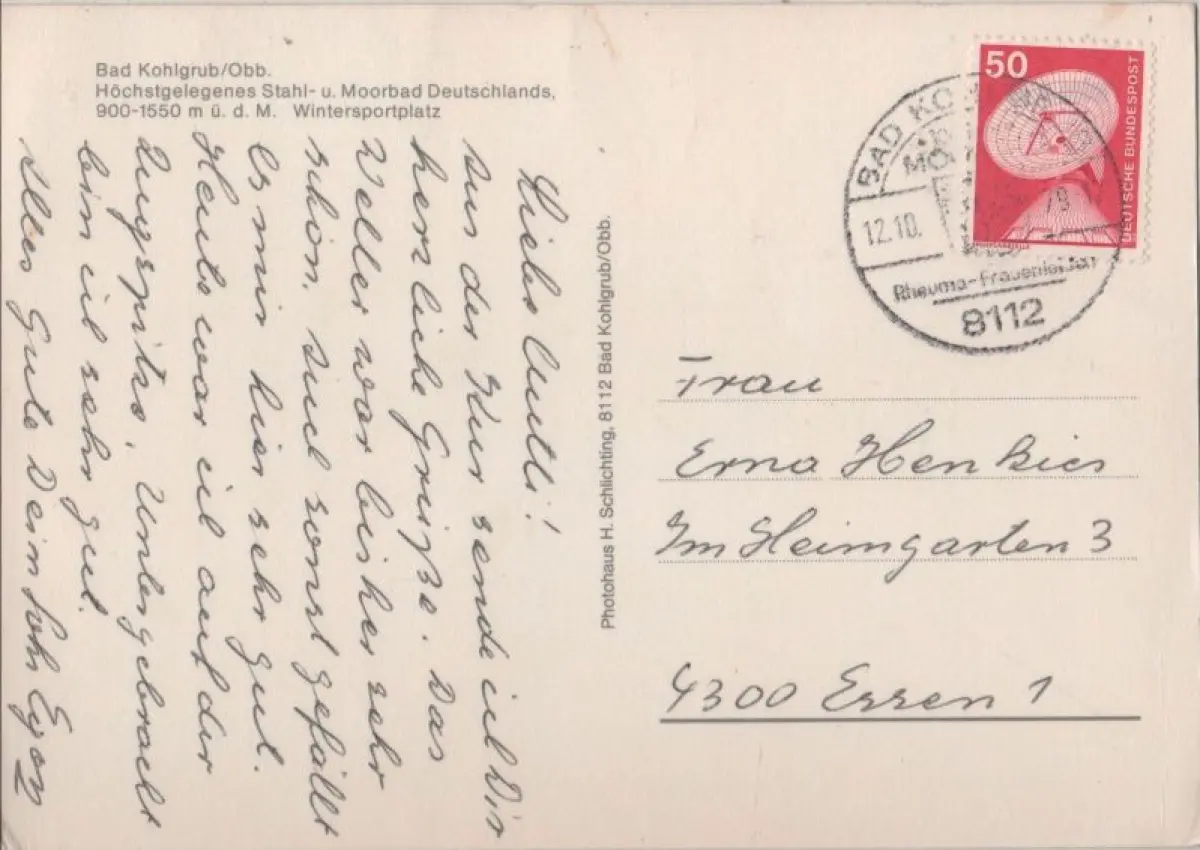 Bad Kohlgrub/Obb.
Höchstgelegenes Stahl- u. Moorbad Deutschlands,
900-1550 m ü. d. M. Wintersportplatz
Liebe Mutti!
Aus der Kur sende ich Dir
herzliche Grüße. Das
Wetter war bisher sehr
schön. Auch sonst gefällt
es mir hier sehr gut.
Heute war ich auf der
Zugspitze. Untergebracht
bin ich sehr gut.
Alles Gute Dein Sohn Egon
Photohaus H. Schlichting, 8112 Bad Kohlgrub/Obb.
50
DEUTSCHE BUNDESPOST
BAD KO
MO
12.10.
79
Rheuma-Frauenleiden
8112
Frau
Erna Henkies
Im Heimgarten 3
4300 Essen 1